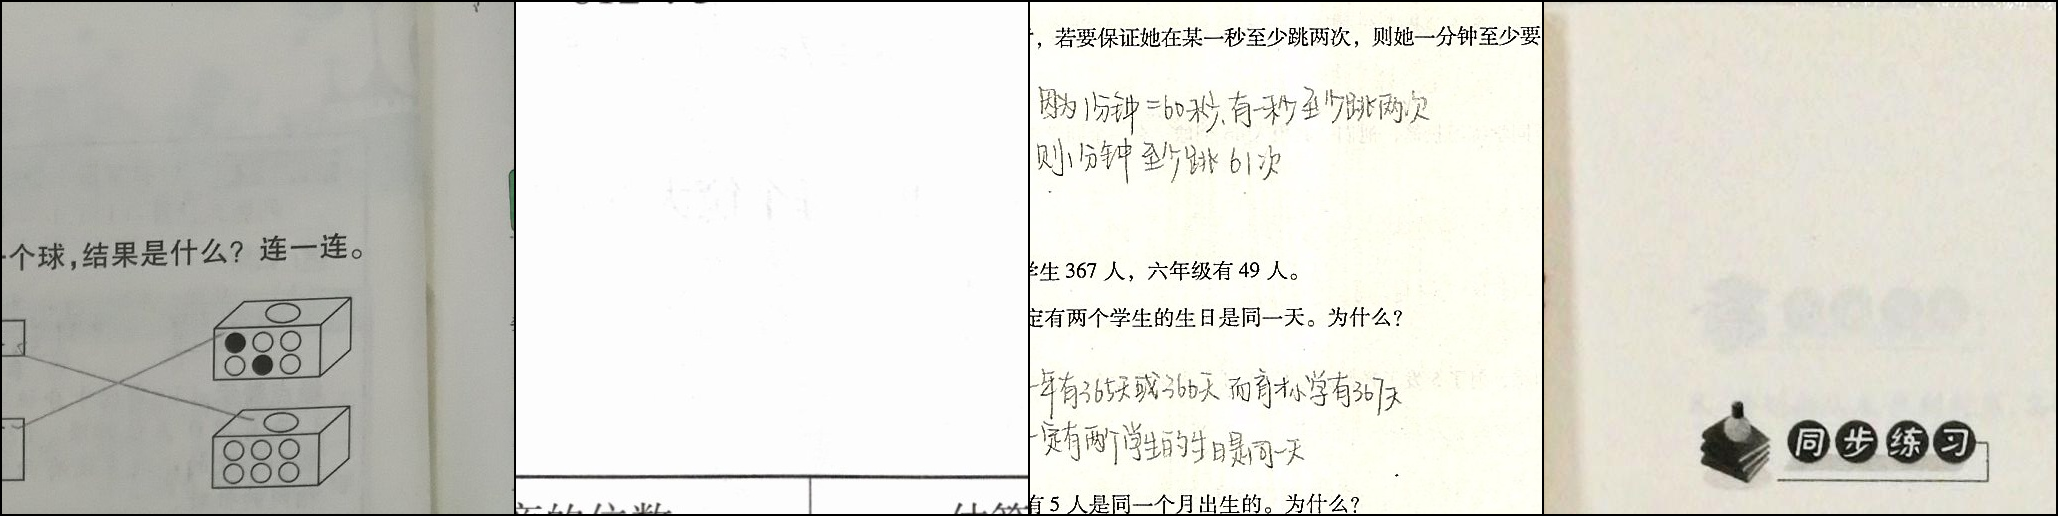 个球，结果是什么？连一连。
商的位数
估算
，若要保证她在某一秒至少跳两次，则她一分钟至少要
因为1分钟=60秒，有一秒至少跳两次
则1分钟至少跳61次
学生 367 人，六年级有 49 人。
定有两个学生的生日是同一天。为什么？
一年有365天或366天 而育才小学有367天
一定有两个学生的生日是同一天
有 5 人是同一个月出生的。为什么？
同步练习